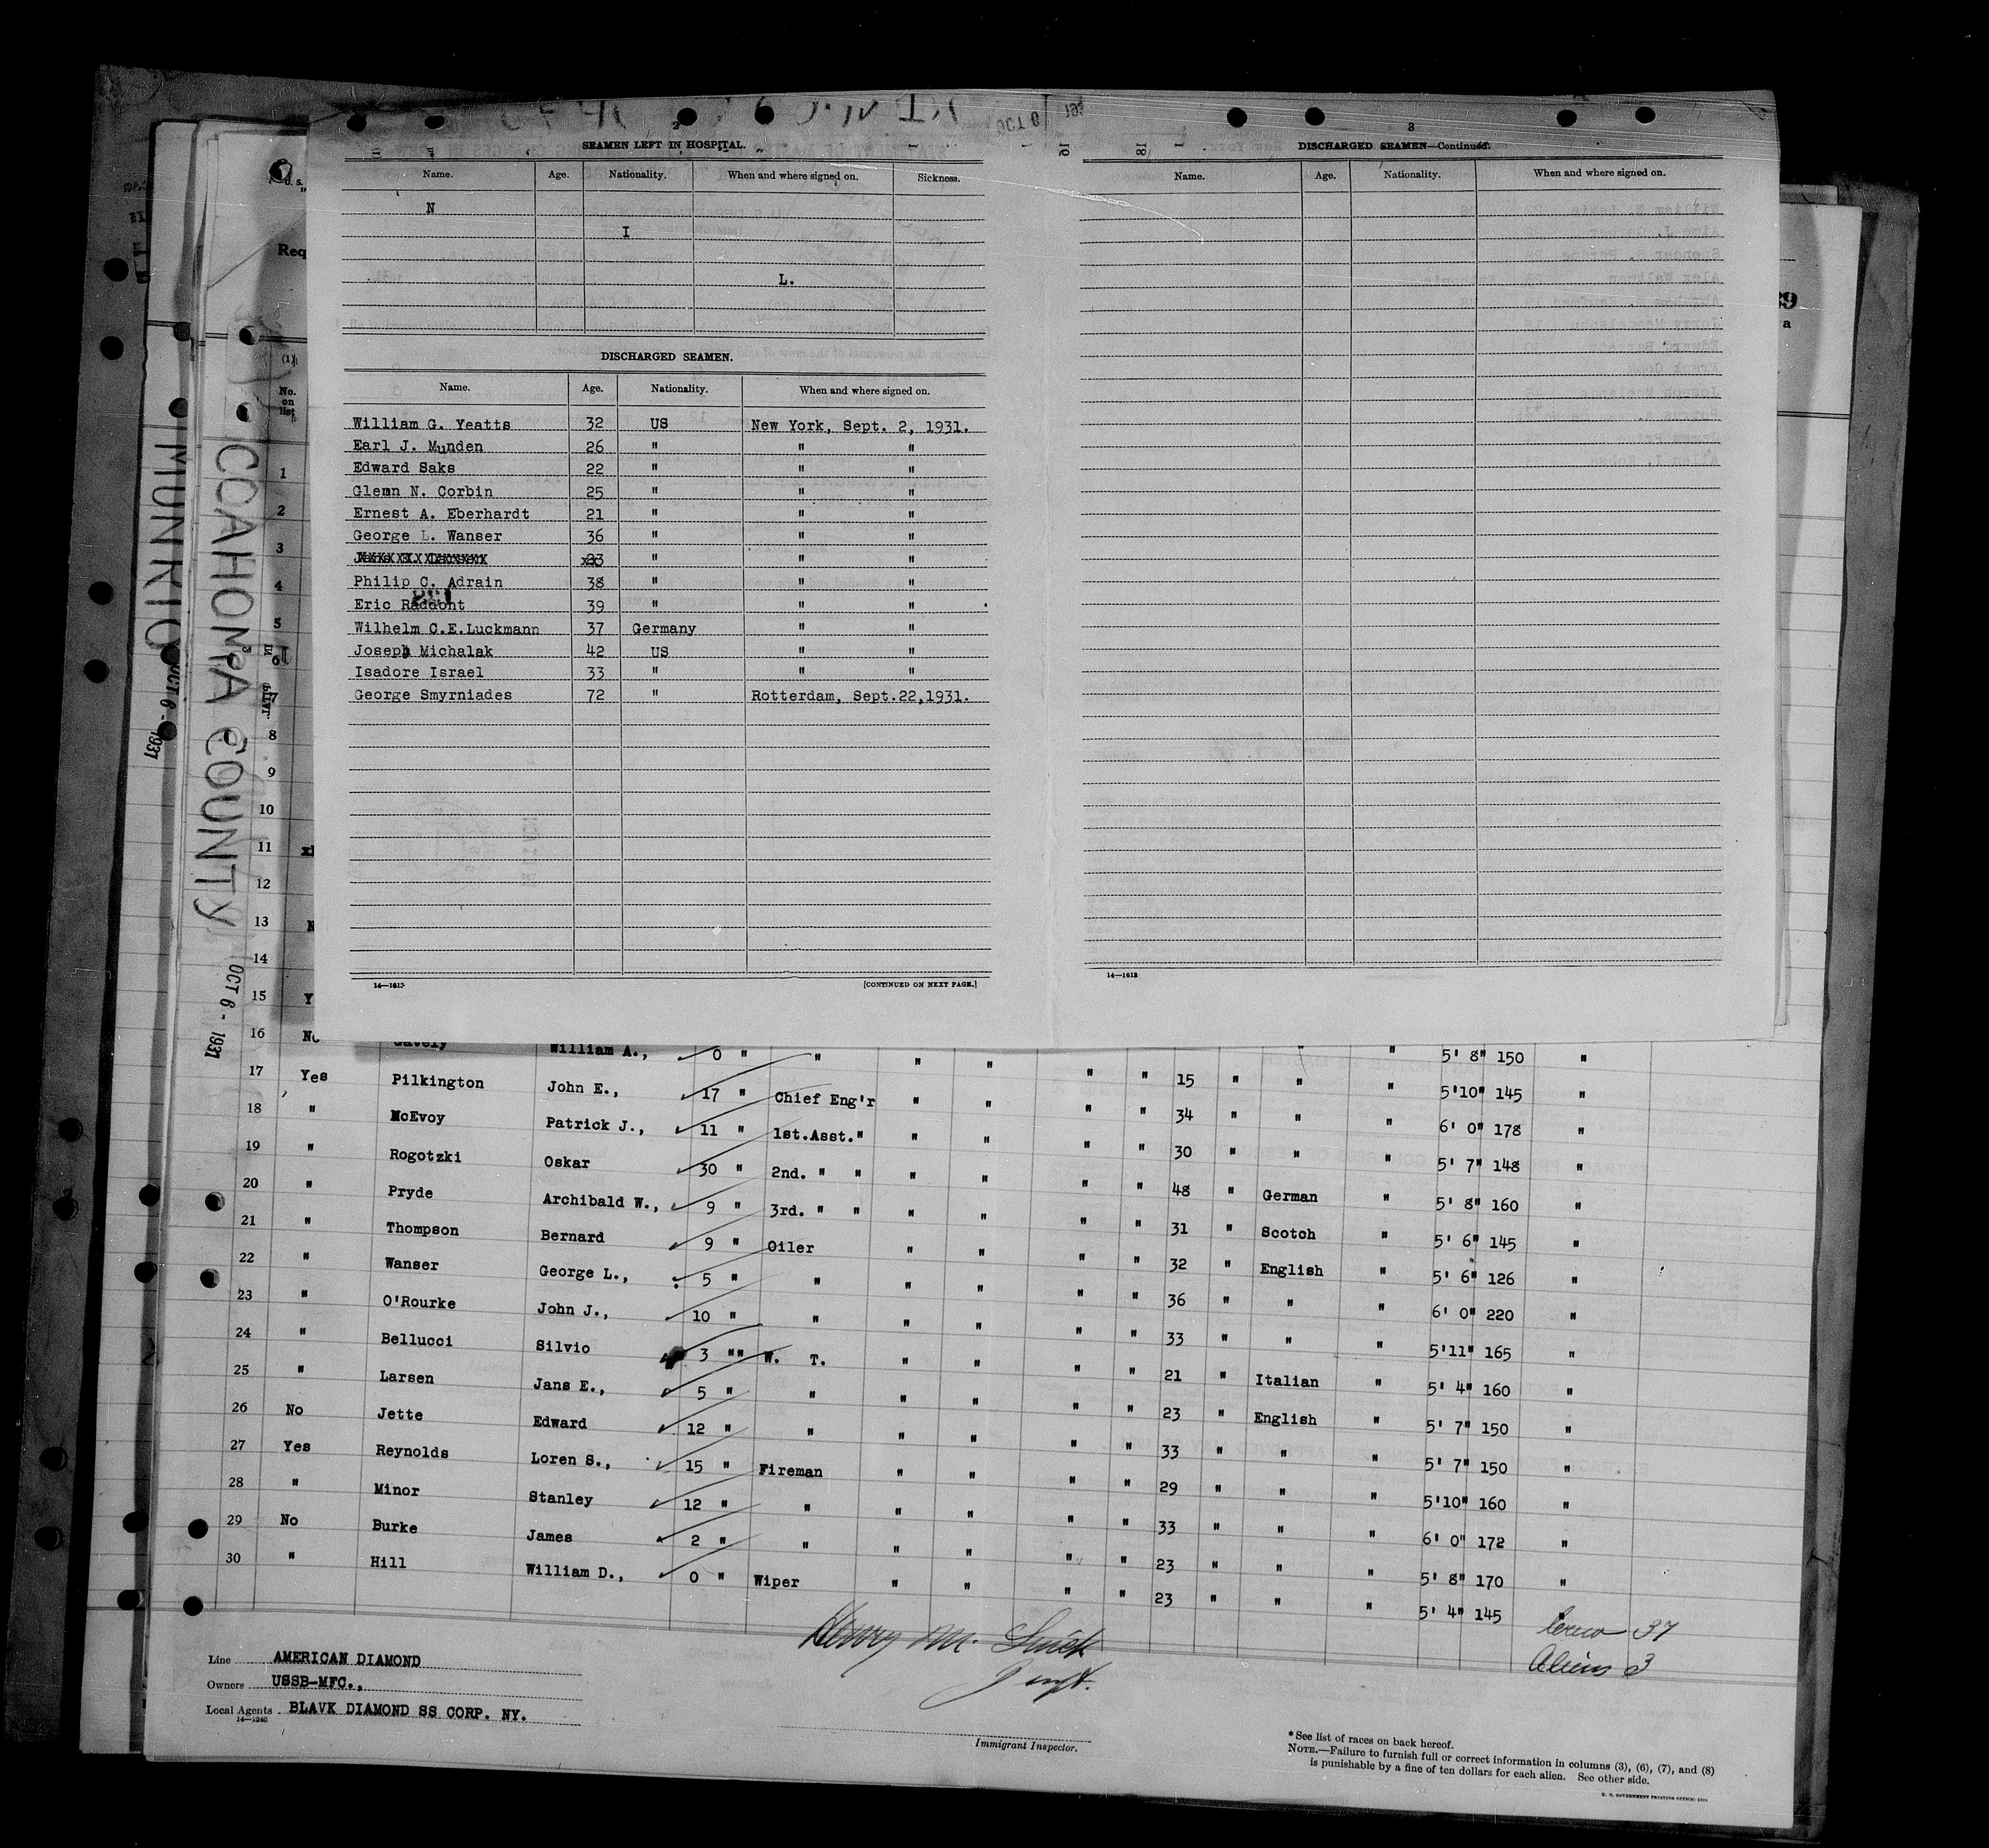 2
SEAMEN LEFT IN HOSPITAL.
Name. Age. Nationality. When and where signed on. Sickness.
N
I
L.
DISCHARGED SEAMEN.
Name. Age. Nationality. When and where signed on.
William G. Yeatts 32 US New York, Sept. 2, 1931.
Earl J. Munden 26 " " "
Edward Saks 22 " " "
Glenn N. Corbin 25 " " "
Ernest A. Eberhardt 21 " " "
George L. Wanser 36 " " "
23 " " "
Philip C. Adrain 38 " " "
Eric Raddont 39 " " "
Wilhelm C.E.Luckmann 37 Germany " "
Joseph Michalak 42 US " "
Isadore Israel 33 " " "
George Smyrniades 72 " Rotterdam, Sept.22,1931.
14—1613
[CONTINUED ON NEXT PAGE.]
3
DISCHARGED SEAMEN—Continued.
Name. Age. Nationality. When and where signed on.
14—1613
U. S.
Req
39
a
(1)
No.
on
list
1
2
3
4
5
6
7
8
9
10
11
12
13
14
15 Y
MUNRIO
OCT 6 - 1931
COAHOMA COUNTY
OCT 6 - 1931
16 No Gately William A., 0 " " " " " " 15 " " " 5' 8" 150 "
17 Yes Pilkington John E., 17 " Chief Eng'r " " " " 34 " " " 5'10" 145 "
18 " McEvoy Patrick J., 11 " 1st.Asst." " " " " 30 " " " 6' 0" 178 "
19 " Rogotzki Oskar 30 " 2nd. " " " " " " 48 " German " 5' 7" 148 "
20 " Pryde Archibald W., 9 " 3rd. " " " " " " 31 " Scotch " 5' 8" 160 "
21 " Thompson Bernard 9 " Oiler " " " " 32 " English " 5' 6" 145 "
22 " Wanser George L., 5 " " " " " " 36 " " " 5' 6" 126 "
23 " O'Rourke John J., 10 " " " " " " 33 " " " 6' 0" 220 "
24 " Bellucci Silvio 3 "" W. T. " " " " 21 " Italian " 5'11" 165 "
25 " Larsen Jans E., 5 " " " " " " 23 " English " 5' 4" 160 "
26 No Jette Edward 12 " " " " " " 33 " " " 5' 7" 150 "
27 Yes Reynolds Loren S., 15 " Fireman " " " " 29 " " " 5' 7" 150 "
28 " Minor Stanley 12 " " " " " " 33 " " " 5'10" 160 "
29 No Burke James 2 " " " " " " 23 " " " 6' 0" 172 "
30 " Hill William D., 0 " Wiper " " " " 23 " " " 5' 8" 170 "
5' 4" 145
Crew 37
Aliens 3
Line AMERICAN DIAMOND
Owners USSB-MFC.,
Local Agents BLAVK DIAMOND SS CORP. NY.
14—1240
Henry M.
Immigrant Inspector.
*See list of races on back hereof.
NOTE.—Failure to furnish full or correct information in columns (3), (6), (7), and (8)
is punishable by a fine of ten dollars for each alien. See other side.
U. S. GOVERNMENT PRINTING OFFICE: